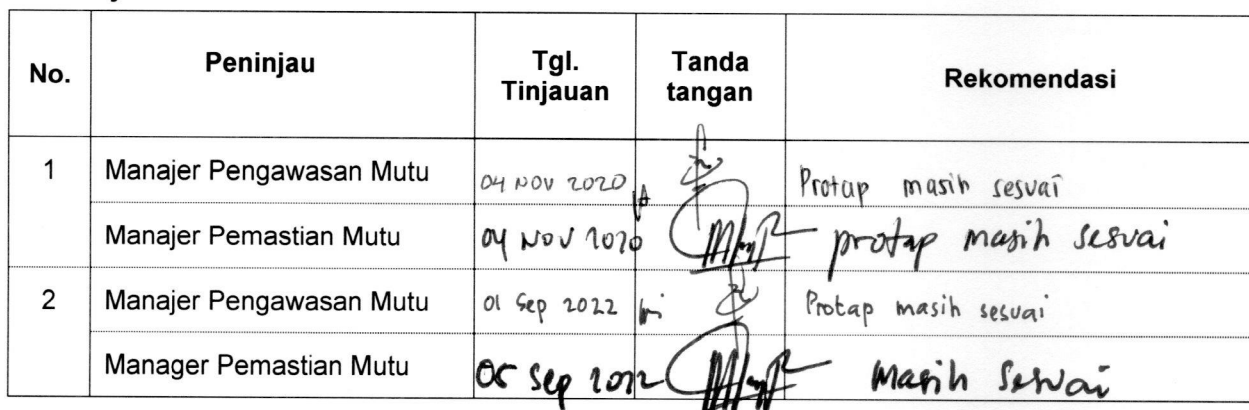 No. Peninjau Tgl. Tinjauan Tanda tangan Rekomendasi
1 Manajer Pengawasan Mutu 04 NOV 2020 Protap masih sesuai
Manajer Pemastian Mutu 04 NOV 2020 protap masih sesuai
2 Manajer Pengawasan Mutu 01 Sep 2022 Protap masih sesuai
Manager Pemastian Mutu 05 Sep 2022 Masih Sesuai